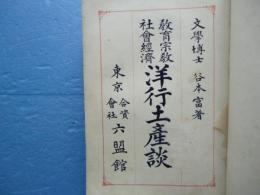 文學博士 谷本富著
教育宗教
社會經濟
洋行土產談
東京 合資會社 六盟館